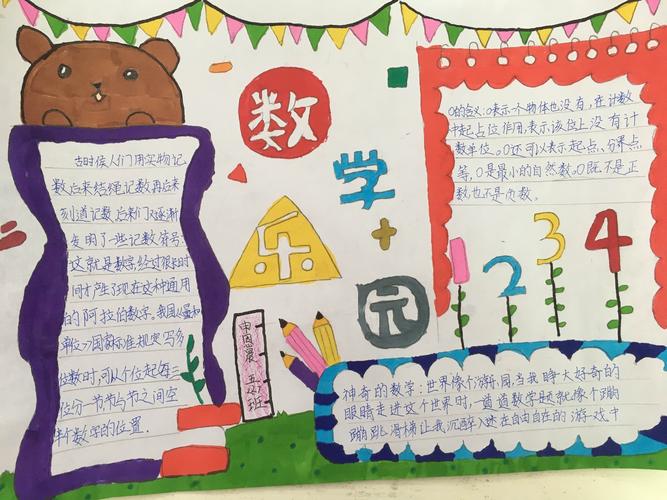 数
学
乐
园
古时候人们用实物记
数后来结绳记数再后来
刻道记数后来人们逐渐
发明了一些记数符号:
这就是数字经过很长时
间才产生了现在这种通用
的阿拉伯数字。我国
国家标准规定写多
位数时,可从个位起每三
位分一节,节与节之间空
半个数字的位置.
0的含义:0表示一个物体也没有,在计数
中起占位作用,表示该位上没有计
数单位。0还可以表示起点、分界点
等,0是最小的自然数。0既不是正
数也不是负数。
1 2 3 4
五(7)
班
神奇的数学:世界像个游乐园,当我睁大好奇的
眼睛走进这个世界时,一道道数学题就像个蹦
蹦跳滑梯让我沉醉入迷在自由自在的游戏中